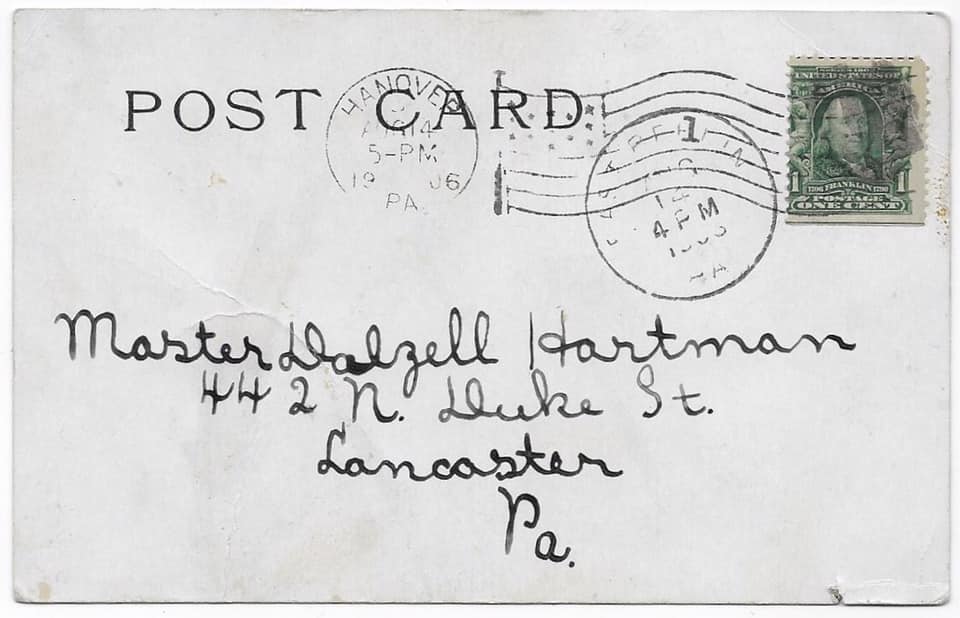 POST CARD
HANOVER
AUG 14
5-PM
19 06
PA.
1
14
4 PM
UNITED STATES OF
AMERICA
1 1706 FRANKLIN 1790 1
POSTAGE
ONE CENT
Master Dalzell Hartman
442 N. Duke St.
Lancaster
Pa.